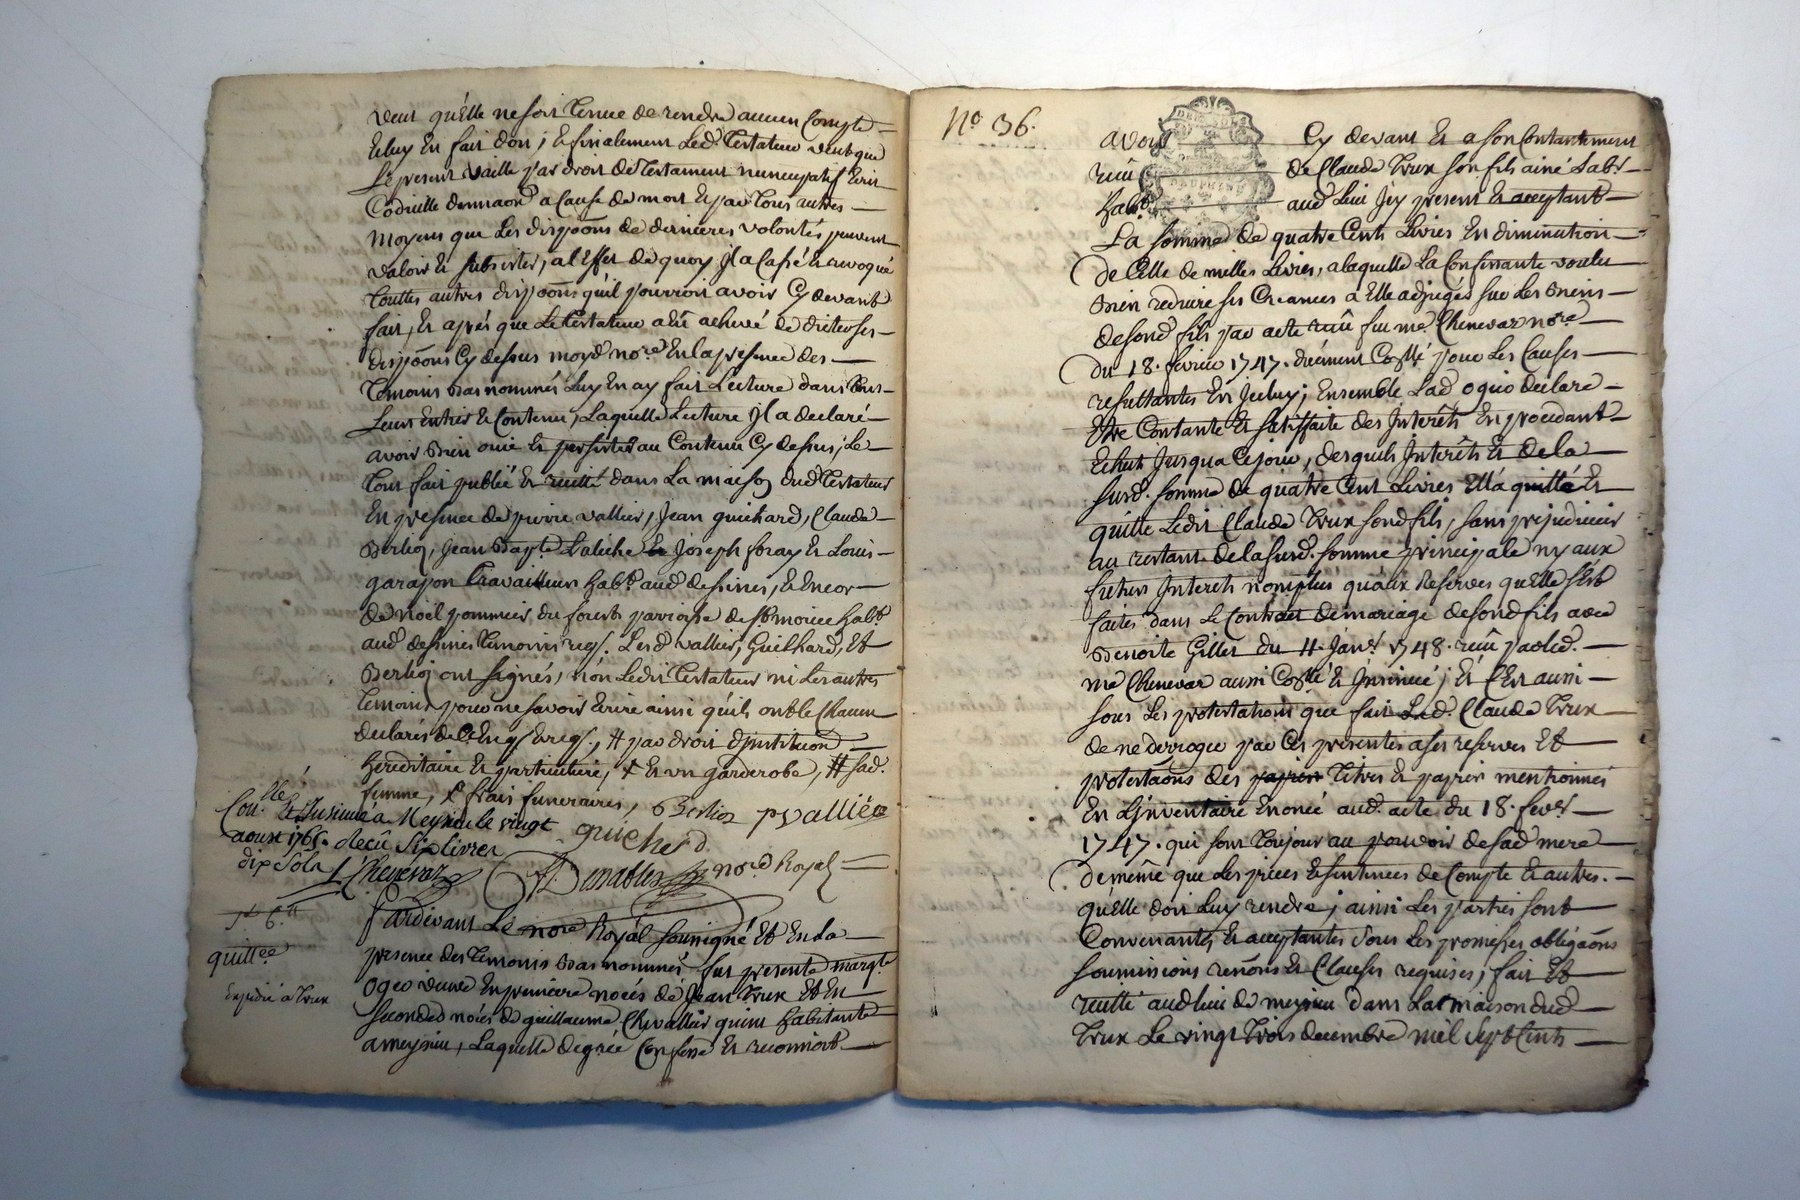 veut qu'Elle ne soit tenue de rendre aucun Compte
Et luy En fait don; Et finalement Led. Testateur veut que
Le present vaille par droit de Testament nuncupatif Ecrit
Codicille donnaon a Cause de mort Et par tous autres
moyens que Les dispoons de dernieres volontés peuvent
valoir Et subsister, al'Effet de quoy Il a Cassé Et revoqué
touttes autres dispoons qu'il pourroit avoir Cy devant
fait, Et aprés que Le Testateur a Eû achevé de dicter ses
dispoons Cy dessus moyd. nore En la presence des
temoins bas nommés Luy En ay fait Lecture dans tous
Leurs Entier Et Contenu, Laquelle Lecture Il a declaré
avoir bien ouie Et persister au Contenu Cy dessus, Le
tout fait publié Et recitté dans La maison dud. Testateur
En presence de pierre vallier, Jean guichard, Claude
Berlioz, Jean Bapte. Laliche Et Joseph foray Et Louis
garapon travailleurs habts. aud. dessines, Et Encor
de Noël pommier du parroisse de habt.
aud. dessines temoins reqs. Lesd. vallier, Guichard, Et
Berlioz ont signés, non Ledit Testateur ni Les autres
temoins pour ne savoir Ecrire ainsi qu'ils ont le Chacun
declarés de Ce Enqs Et reqs, # par droit d'institution
hereditaire Et particuliere, + Et un garderobe, # sad.
femme, + frais funeraires, Berlioz pvallier
guichard
Conlle. Et Insinué a Meyzieu le vingt
aoust 1765. Reçu Six livres
dix Sols Chenevaz
nore. Royal
quittce
Expedié à Trux
Pardevant Le nore Royal soussigné Et En La
presence des temoins bas nommés fut presente margte.
ogeo veuve En premiere noces de Jean Trux Et En
secondes noces de guillaume Chevallier quint habitante
a meysieu, Laquelle de gré a Confessé Et reconnoit
No 36.
avoir Cy devant Et a son Contantement
reçu de Claude Trux son fils ainé Labr.
habt. aud. Lieu Icy present Et acceptant
La somme de quatre Cents Livres En diminution
de Celle de milles Livres, a laquelle La Confessante voulu
bien reduire ses Creances a Elle adjugés sur Les biens
de sond. fils par acte reçû sur me. Chenevaz nore
du 18. fevrier 1747. duement Conllé pour Les Causes
resultantes En Iceluy; Ensemble Lad. ogeo declare
Etre Contante Et satisfaite des Interêts En procedant
Echus Jusqu'a Ce jour, desquels Interêts Et de la
susd. somme de quatre Cent Livres Ell'a quitté Et
quitte Ledit Claude Trux sond. fils, sans prejudicier
au restant de la susd. somme principale ny aux
futurs Interêts non plus qu'aux Reserves qu'Elle s'est
faites dans Le Contrat de mariage de sond. fils avec
Benoite Gillet du 4. Janr. 1748. reçû par led.
me Chenevaz aussi Conllé Et Insinué; Et C'est aussi
sous Les protestations que fait Led. Claude Trux
de ne deroger par Ces presentes a ses reserves Et
protestaons des papiers titres Et papier mentionnés
En L'inventaire Enoncé aud. acte du 18. fevr.
1747. qui sont toujour au pouvoir de sad. mere
de même que Les pieces Et sentences de Compte Et autres.
qu'Elle doit Luy rendre; ainsi Les parties sont
Convenantes Et acceptantes sous Les promesses obligaons
soumissions renons Et Clauses requises; fait Et
recitté aud. lieu de meysieu dans La maison dud.
Trux Le vingt trois decembre mil sept Cents